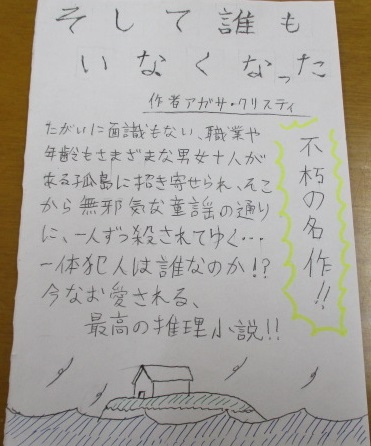 そして誰も
いなくなった
作者アガサ・クリスティ
たがいに面識もない、職業や
年齢もさまざまな男女十人が
ある孤島に招き寄せられ、そこ
から無邪気な童謡の通り
に、一人ずつ殺されてゆく…
一体犯人は誰なのか!?
今なお愛される、
最高の推理小説!!
不朽の名作!!